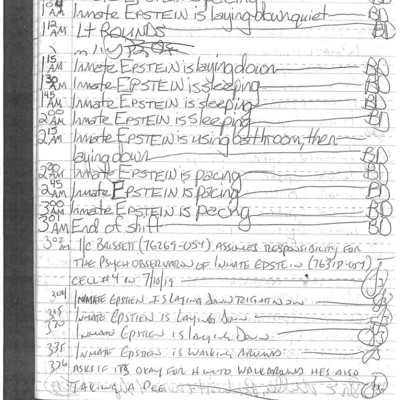 Inmate EPSTEIN is laying down quiet BD
1 12 AM Lt ROUNDS BD
1 15 AM Inmate EPSTEIN is laying down BD
1 30 AM Inmate EPSTEIN is sleeping BD
1 45 AM Inmate EPSTEIN is sleeping BD
2 00 AM Inmate EPSTEIN is sleeping BD
2 15 AM Inmate EPSTEIN is using bathroom, then
laying down BD
2 30 AM Inmate EPSTEIN is pacing BD
2 45 AM Inmate EPSTEIN is pacing BD
3 00 AM Inmate EPSTEIN is pacing BD
3 01 AM End of shift BD
302 I/C BRISSETT (76269-054) ASSUMES RESPONSIBILITY FOR
THE PSYCH OBSERVATION OF INMATE EPSTEIN (76318-054)
CELL #4 IN 7/10/19
304 INMATE EPSTIEN IS LAYING DOWN RIGHT NOW
315 INMATE EPSTIEN IS LAYING DOWN
330 INMATE EPSTIEN IS LAYING DOWN
335 INMATE EPSTIEN IS WALKING AROUND
336 ASKS IF IT'S OKAY FOR HIM TO WALK AROUND HES ALSO
TAKING A PEE